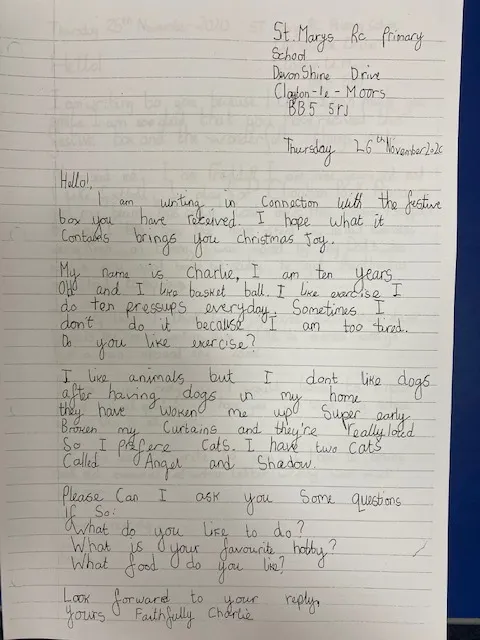 St. Marys Rc Primary
School
Devonshire Drive
Clayton-le-Moors
BB5 5RJ
Thursday 26th November 2020
Hello!,
I am writing in Connection with the festive
box you have received. I hope what it
Contains brings you christmas Joy.
My name is Charlie, I am ten years
Old and I like basket ball. I like exercise I
do ten pressups everyday. Sometimes I
don't do it because I am too tired.
Do you like exercise?
I like animals but I dont like dogs
after having dogs in my home
they have woken me up Super early
Broken my Curtains and they're really loud
So I prefere Cats. I have two Cats
Called Angel and Shadow.
Please Can I ask you Some questions
if So:
What do you like to do?
What is your favourite hobby?
What food do you like?
Look forward to your reply,
Yours Faithfully Charlie